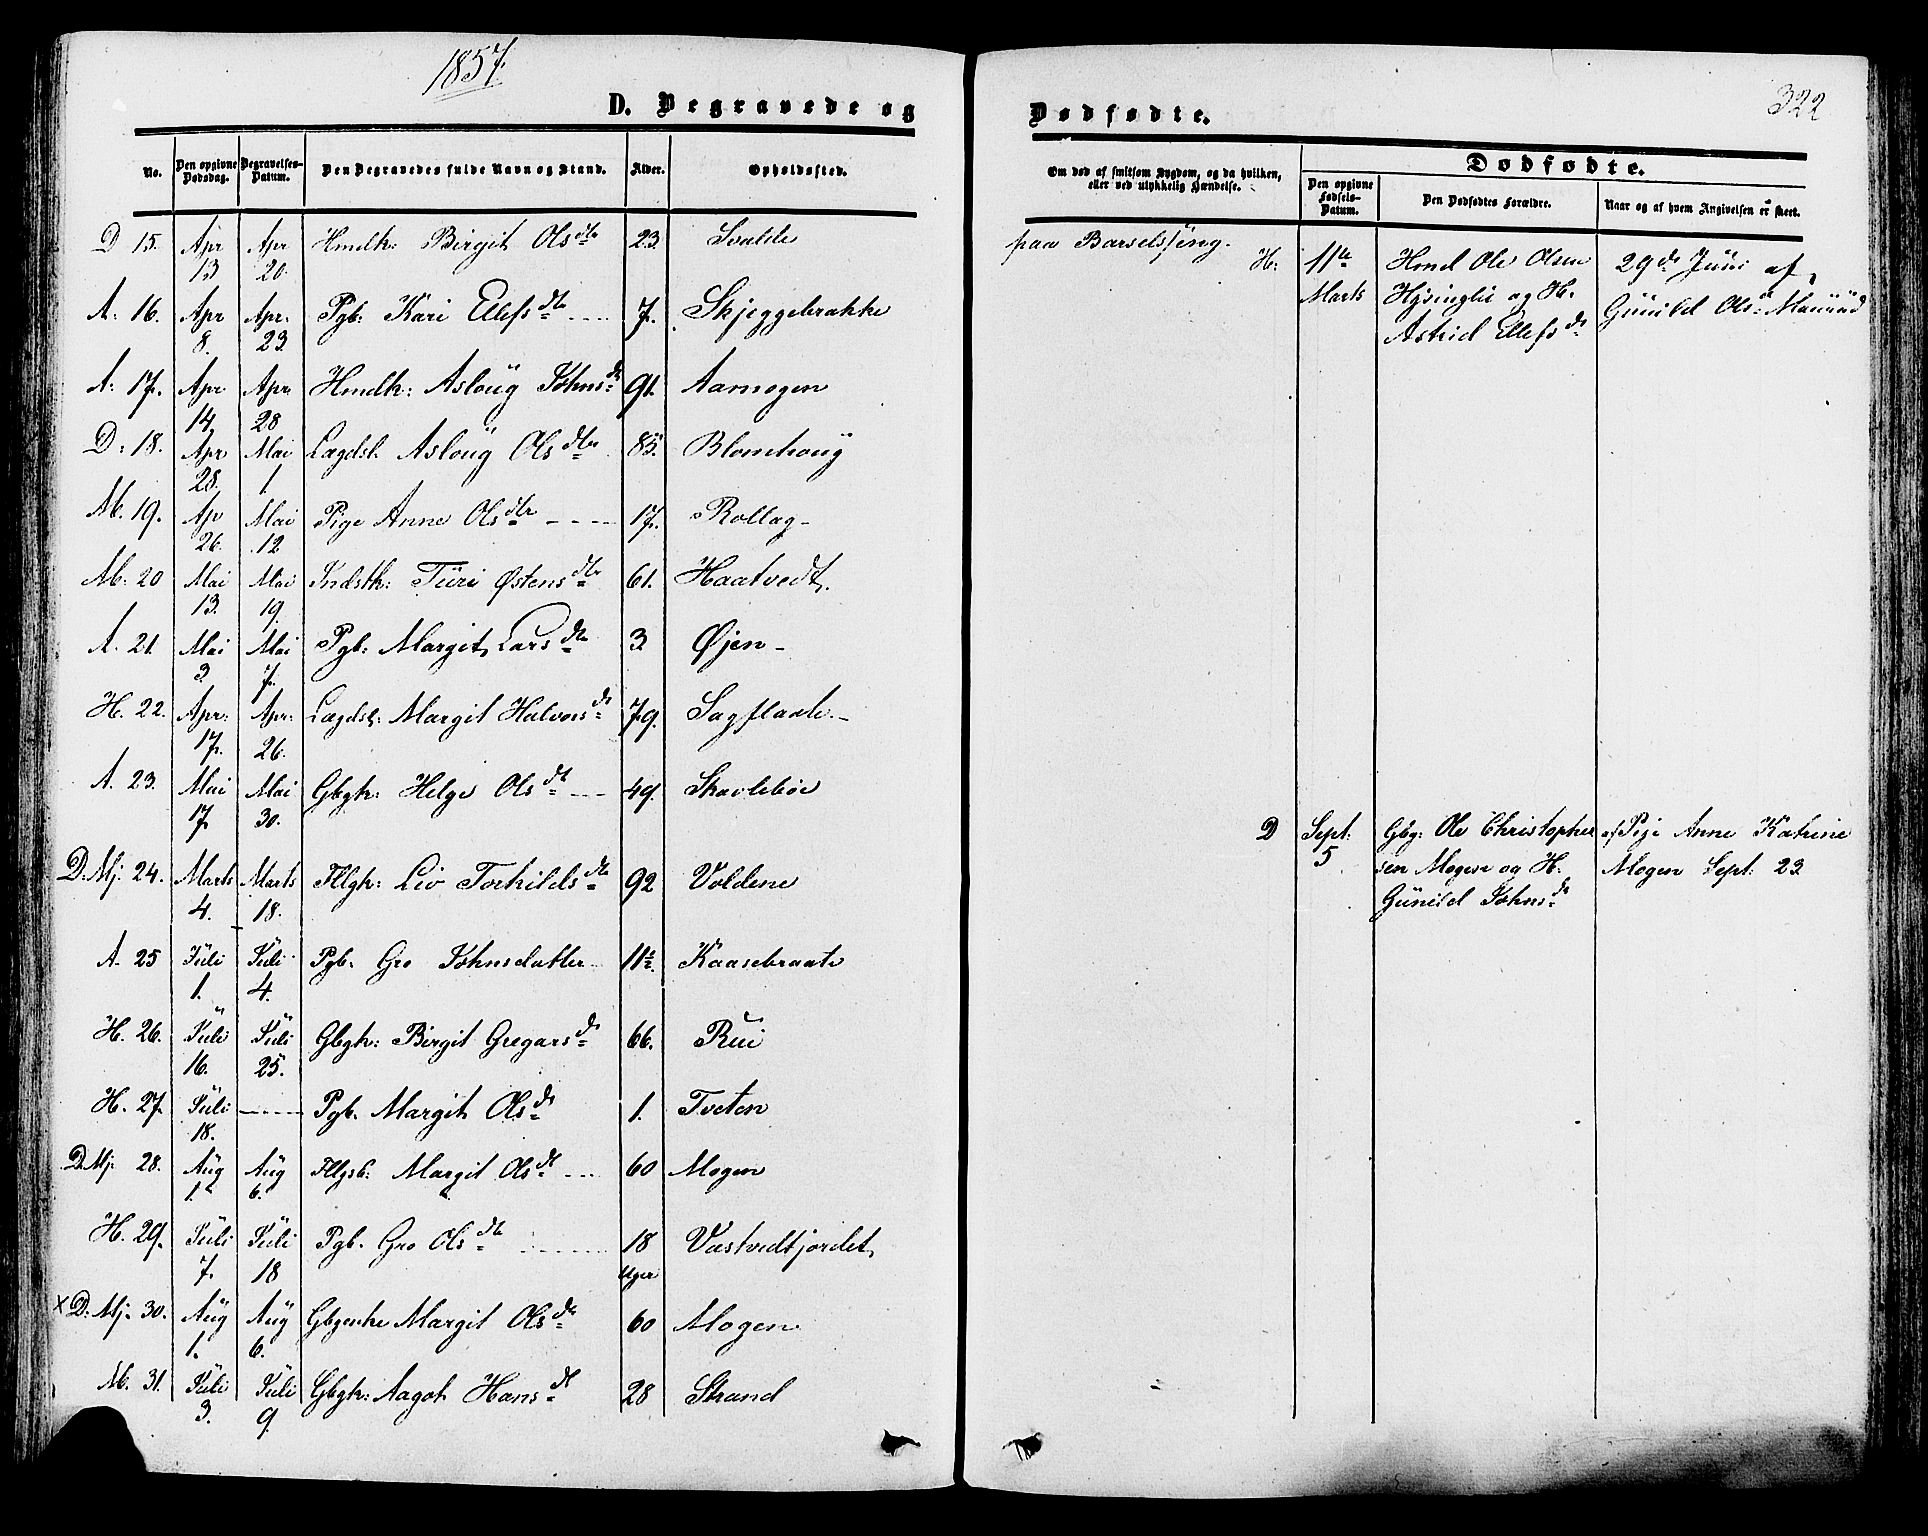 1857.
322
D. Begravede og
Dødfødte.
No.
Den opgivne Dødsdag.
Begravelses-Datum.
Den Begravedes fulde Navn og Stand.
Alder.
Opholdssted.
Om død af smitsom Sygdom, og da hvilken, eller ved ulykkelig Hændelse.
Dødfødte.
Den opgivne Fødsels-Datum.
Den Dødfødtes Forældre.
Naar og af hvem Angivelsen er skeet.
D 15. Apr 13 Apr 20. Hmdk: Birgit Olsdtr 23. paa Barselseng.
A: 16. Apr 8. Apr. 23. Pgb: Kari Ellefsdtr 7. Skjeggebrække
A: 17. Apr 14 Apr. 28 Hmdk: Asloug Johnsdr 91. Aamogen
D: 18. Apr 28. Mai 1. Lægdsl. Asloug Olsdtr 85. Blomhoug
M. 19. Ap 26. Mai 12 Pige Anne Olsdtr 17. Rollag
M. 20 Mai 13. Mai 19. Indstk: Turi Østensdtr 61. Haatvedt
A. 21. Mai 3. Mai 7. Pgb: Margit Larsdtr 3 Øjen
H. 22. Apr: 17. Apr: 26. Lægdsl: Margit Halvorsdr 79. Sagflaate
A. 23. Mai 17 Mai 30. Gbgk: Helge Olsdt 49. Skavlebøe
D. Mj. 24. Marts 4. Marts 18. Fllgk: Liv Torkildsdtr 92 Voldene
A. 25 Juli 1. Juli 4. Pgb. Gro Johnsdatter 11 Kaasebraate
H. 26. Juli 16. Juli 25. Gbgk: Birgit Gregarsdr 66. Rui
H. 27. Juli 18. Pgb. Margit Olsdr 1. Tveten
D Mj. 28. Aug 1. Aug 6. Margit Olsdt 60 Mogen
H. 29. Juli 7. Juli 18 Pgb. Gro Olsdtr 18 Uger Vastvedtjordet
x D: Mj. 30. Aug 1. Aug 6. Gbgenke Margit Olsdtr 60 Mogen
M. 31. Juli 3. Juli 9. Gbgk: Aagot Hansdt 28 Strand
H: 11te Marts
Hmd Ole Olsen
og H.
Astrid Ellefsdr
29de Juni af
Gunild Olsdr
D Sept: 5
Gbg: Ole Christopher
sen Mogen og H.
Gunild Johnsdr
af Pige Anne Katrine
Mogen Sept: 23